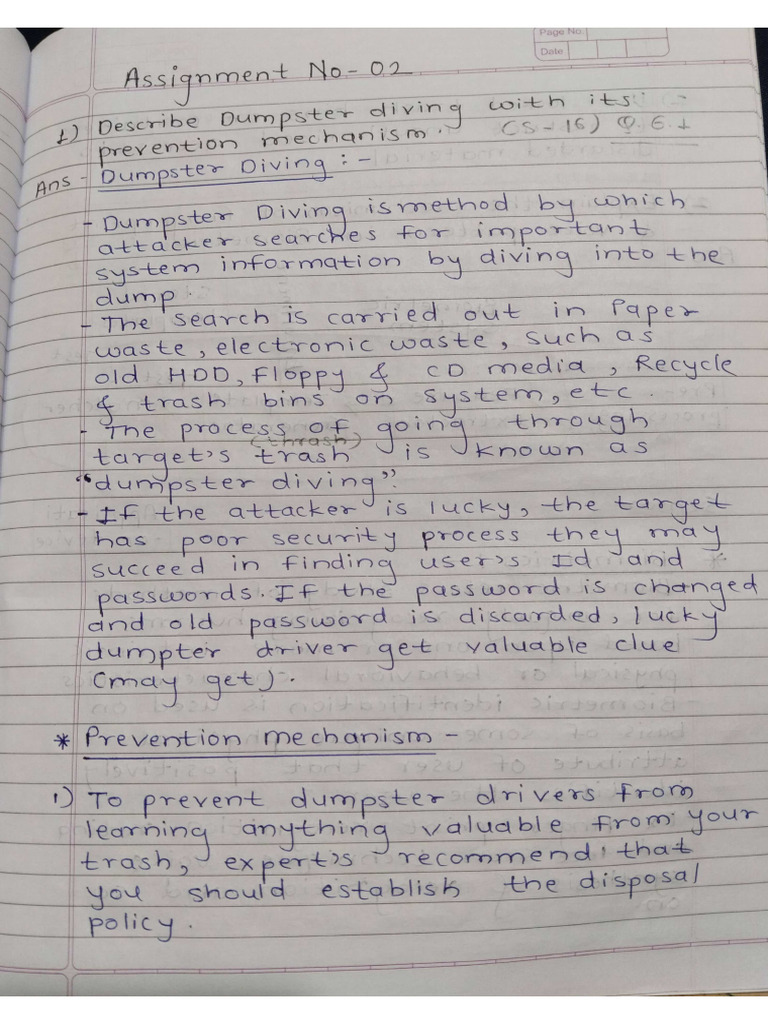 Page No.
Date
Assignment No-02
1) Describe Dumpster diving with its
prevention mechanism. (S-16) Q.6.1
Ans - Dumpster Diving :-
- Dumpster Diving is method by which
attacker searches for important
system information by diving into the
dump.
- The search is carried out in Paper
waste, electronic waste, such as
old HDD, Floppy & CD media, Recycle
& trash bins on system, etc.
- The process of going through
(thrash)
target's trash is known as
"dumpster diving".
- If the attacker is lucky, the target
has poor security process they may
succeed in finding user's Id and
passwords. If the password is changed
and old password is discarded, lucky
dumpter driver get valuable clue
(may get).
* Prevention mechanism -
1) To prevent dumpster drivers from
learning anything valuable from your
trash, expert's recommend that
you should establish the disposal
policy.